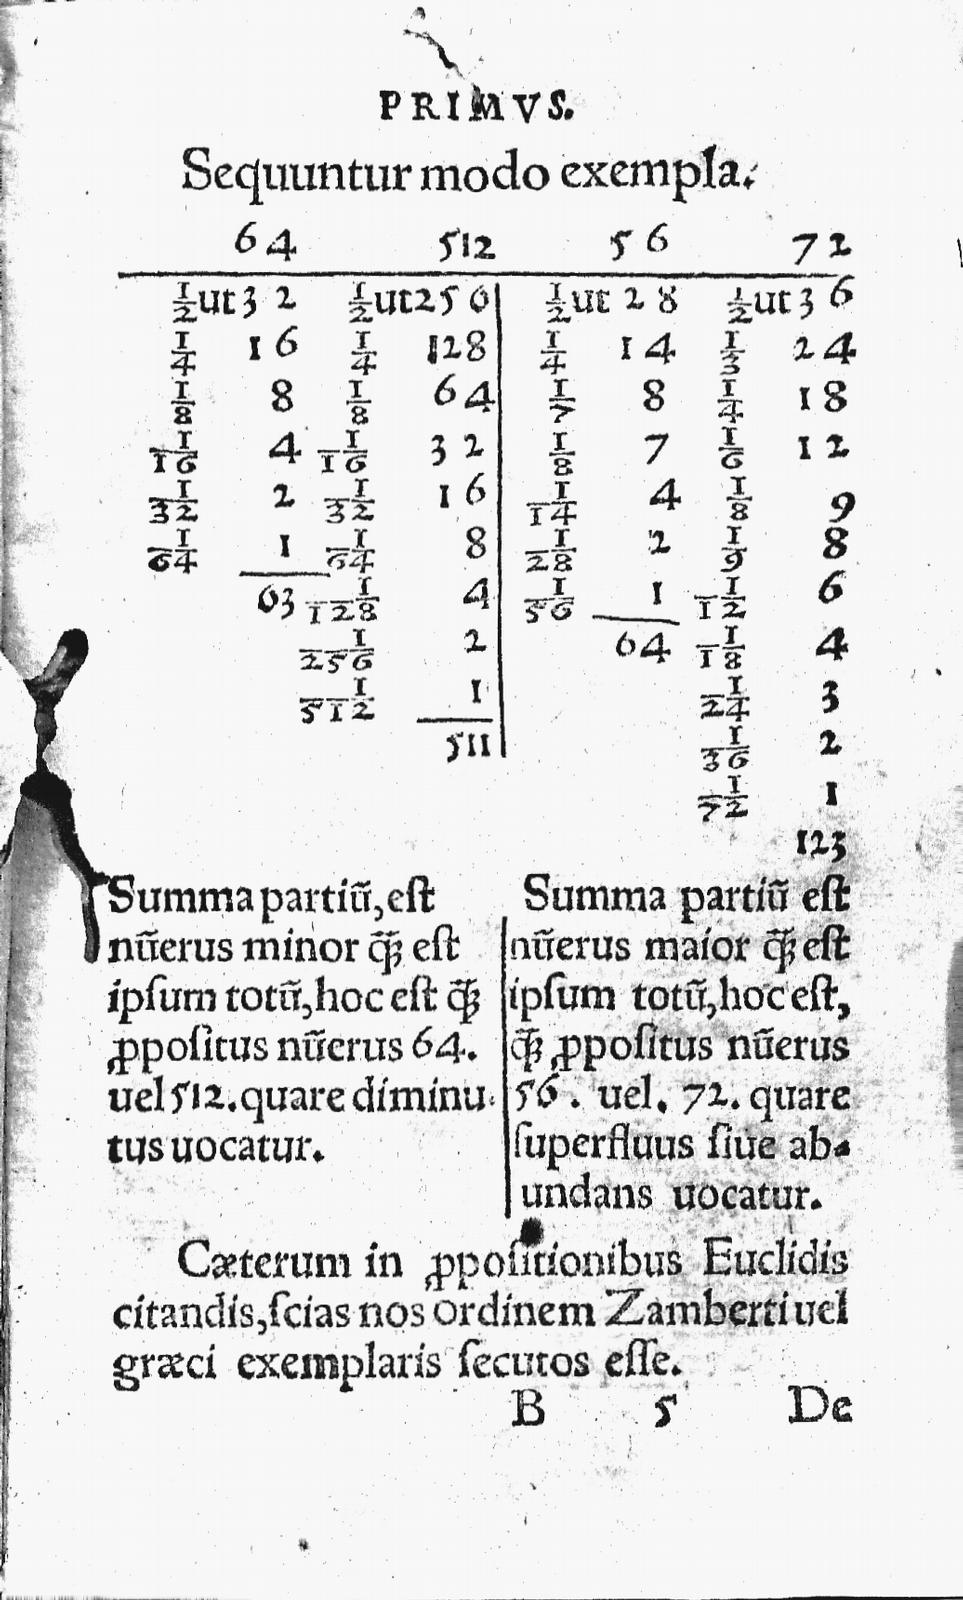 PRIMVS.
Sequuntur modo exempla.
64 512 56 72
1/2 ut 32 1/2 ut 256 1/2 ut 28 1/2 ut 36
1/4 16 1/4 128 1/4 14 1/3 24
1/8 8 1/8 64 1/7 8 1/4 18
1/16 4 1/16 32 1/8 7 1/6 12
1/32 2 1/32 16 1/14 4 1/8 9
1/64 1 1/64 8 1/28 2 1/9 8
63 1/128 4 1/56 1 1/12 6
1/256 2 64 1/18 4
1/512 1 1/24 3
511 1/36 2
1/72 1
123
Summa partiũ, eſt
nũerus minor q̃ꝫ eſt
ipſum totũ, hoc eſt q̃ꝫ
ꝓpoſitus nũerus 64.
uel 512. quare diminu-
tus uocatur.
Summa partiũ eſt
nũerus maior q̃ꝫ eſt
ipſum totũ, hoc eſt,
q̃ꝫ ꝓpoſitus nũerus
56. uel. 72. quare
ſuperfluus ſiue ab-
undans uocatur.
Cæterum in ꝓpoſitionibus Euclidis
citandis, ſcias nos ordinem Zamberti uel
græci exemplaris ſecutos eſſe.
B 5 De